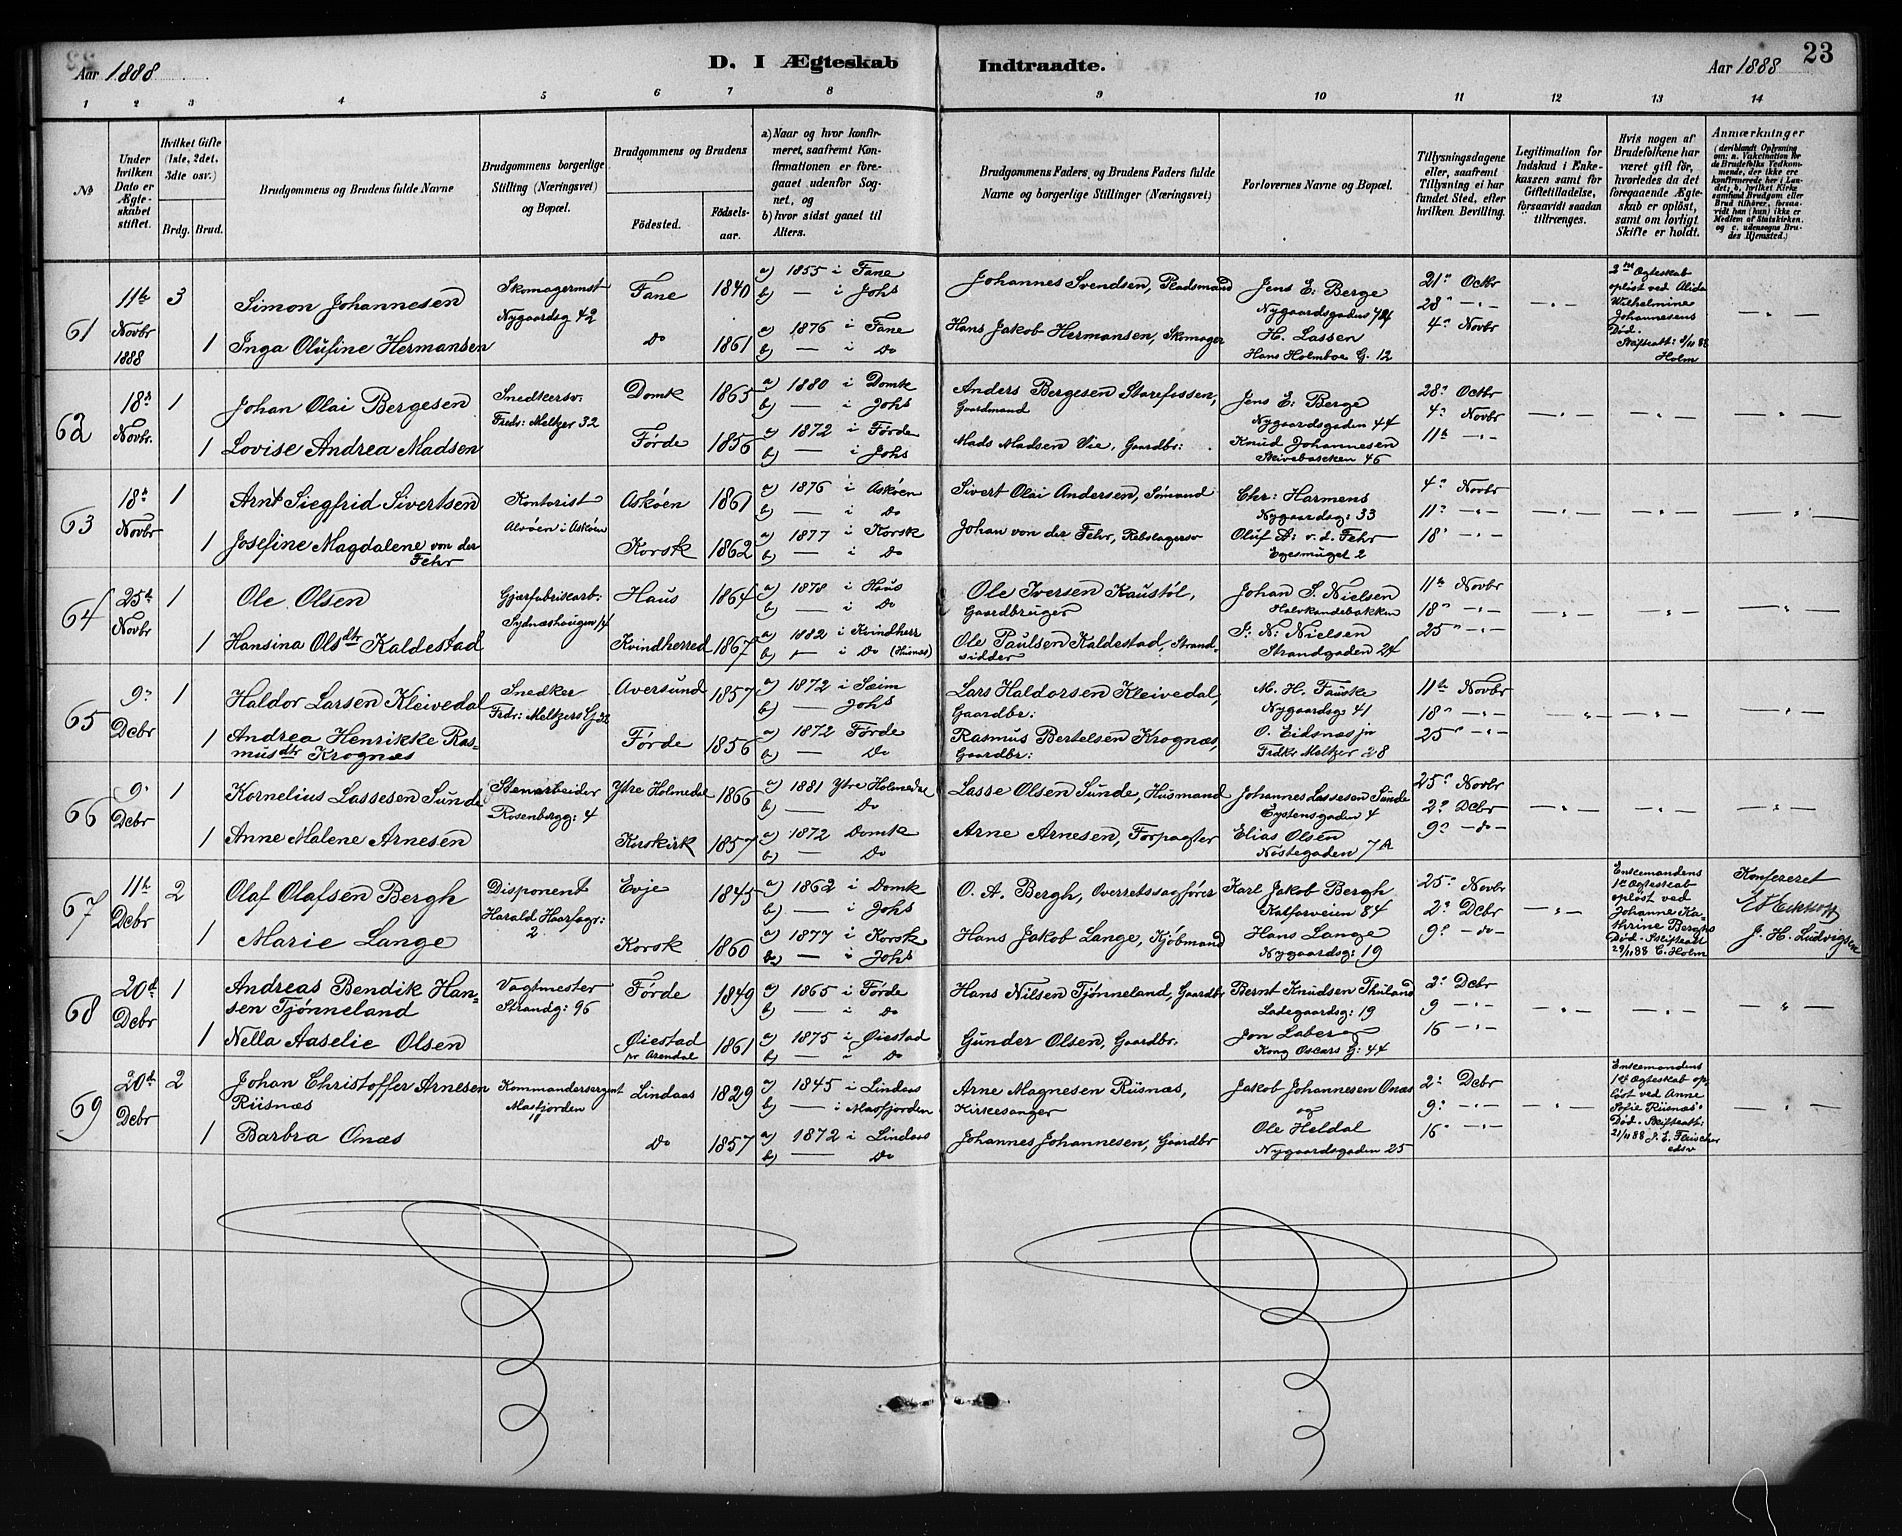 Aar 1888
D. I Ægteskab Indtraadte.
Aar 1888
23
1 2 3 4 5 6 7 8 9 10 11 12 13 14
No
Under hvilken Dato er Ægteskabet stiftet.
Hvilket Gifte (1ste, 2det, 3die osv.)
Brdg. Brud.
Brudgommens og Brudens fulde Navne
Brudgommens borgerlige Stilling (Næringsvei) og Bopæl.
Brudgommens og Brudens
Fødested.
Fødselsaar.
a) Naar og hvor konfirmeret, saafremt Konfirmationen er foregaaet udenfor Sognet, og
b) hvor sidst gaaet til Alters.
Brudgommens Faders og Brudens Faders fulde Navne og borgerlige Stillinger (Næringsvei)
Forlovernes Navne og Bopæl.
Tillysningsdagene eller, saafremt Tillysning ei har fundet Sted, efter hvilken Bevilling.
Legitimation for Indskud i Enkekassen samt for Giftetilladelse, forsaavidt saadan tiltrænges.
Hvis nogen af Brudefolkene har været gift før, hvorledes da det foregaaende Ægteskab er opløst, samt om lovligt Skifte er holdt.
Anmærkninger
(deriblandt Oplysning om: a. Vakcination for de Brudefolks Vedkommende, der ikke ere konfirmerede her i Landet; b. hvilket Kirkesamfund Brudgom eller Brud tilhører, forsaavidt han (hun) ikke er Medlem af Statskirken. og c. udensogns Brudes Hjemsted.)
61 11te Novbr 1888 3 Simon Johannesen Skomagermst Nygaardsg 42 Fane 1840 a) 1855 i Fane b) — i Johs Johannes Svendsen, Pladsmand Jens E: Berge Nygaardsgaden 44 21de Octbr 28 -"- 4de Novbr -"- 2det Ægteskab opløst ved Alida Wilhelmine Johannesens Død. Skifteatt: Holm -"-
1 Inga Olufine Hermansen Do 1861 a) 1876 i Fane b) — i Do Hans Jakob Hermansen, Skomager H. Lassen Hans Holmboe G. 12
62 18de Novbr. 1 Johan Olai Bergesen Snedkersv. Fredr: Meltzer 32 Domk 1865 a) 1880 i Domk b) — i Johs Anders Bergesen Starefossen, Gaardmand Jens E: Berge Nygaardsgaden 44 28de Octbr 4de Novbr 11te -"- -"- -"- -"-
1 Lovise Andrea Madsen Førde 1856 a) 1872 i Førde b) — i Johs Mads Madsen Vie, Gaardbr: Knud Johannesen Skivebakken 46
63 18de Novbr 1 Arnt Siegfrid Sivertsen Kontorist Alvøen i Askøen Askøen 1861 a) 1876 i Askøen b) — i Do Sivert Olai Andersen, Sømand Chr: Harmens Nygaardsg: 33 4de Novbr 11te -"- 18 -"-
1 Josefine Magdalene von der Fehr Korsk 1862 a) 1877 i Korsk b) — i Do Johan von der Fehr, Rebslagersv Oluf A: v. d. Fehr Egesmuget 2
64 25de Novbr 1 Ole Olsen Gjærfabriksarb: Sydnæshaugen 14 Haus 1864 a) 1878 i Haus b) — i Do Ole Iversen Kaustøl, Gaardbruger Johan S. Nielsen Halvkandebakken 11te Novbr 18 -"- 25 -"- -"- -"- -"-
1 Hansina Olsdtr Kaldestad Kvindherred 1867 a) 1882 i Kvindherr b) — i Do (Husnæs) Ole Paulsen Kaldestad, Strandsidder S: N: Nielsen Strandgaden 24
65 9de Dcbr 1 Haldor Larsen Kleivedal Snedker Fredr: Meltzers G. Aversund 1857 a) 1872 i Sæim b) — Johs Lars Haldorsen Kleivedal, Gaardbr: M. H. Fauske Nygaardsg 41 11te Novbr 18 -"- 25 -"- -"- -"- -"-
1 Andrea Henrikke Rasmusdtr Krognæs Førde 1856 a) 1872 Førde b) — Do Rasmus Bertelsen Krognæs, Gaardbr: O. Eidsnæs jn Fredks Meltzer 28
66 9de Dcbr 1 Kornelius Lassesen Sunde Stenarbeider Rosenbergg: 4 Ytre Holmedal 1866 a) 1881 Ytre Holmedal b) — Do Lasse Olsen Sunde, Husmand Johannes Lassesen Sunde Eystensgaden 4 25de Novbr 2de Dcbr 9de -do- -"- -"- -"-
1 Anne Malene Arnesen Korskirk 1857 a) 1872 Domk b) — Do Arne Arnesen, Forpagter Elias Olsen Nøstegaden 7A
67 11te Dcbr 2 Olaf Olafsen Bergh Disponent Harald Haarfagr: 2 Evje 1845 a) 1862 i Domk b) — i Johs O. A. Bergh, Overretssagfører Karl Jakob Bergh Kalfarveien 84 25de Novbr 2de Dcbr 9de -do- -"- Enkemandens 1ste Ægteskab opløst ved Johanne Kathrine Berghs Død. Skifteatt 29/11 88 C. Holm Konfereret J. H. Ludvigsen
1 Marie Lange Korsk 1860 a) 1877 i Korsk b) — i Johs Hans Jakob Lange, Kjøbmand Hans Lange Nygaardsg: 19
68 20de Dcbr 1 Andreas Bendik Hansen Tjønneland Vagtmester Strandg: 96 Førde 1849 a) 1865 i Førde b) — i Do Hans Nilsen Tjønneland, Gaardbr Bernt Knudsen Thuland Ladegaardsg: 19 2de Dcbr 9 -"- 16 -"- -"- -"- -"-
1 Nella Aaselie Olsen Øiestad pr Arendal 1861 a) 1875 i Øiestad b) — i Do Gunder Olsen, Gaardbr. Jon Laberg Kong Oscars G: 44
69 20de Dcbr 2 Johan Christoffer Arnesen Riisnæs Kommandersergent Masfjorden Lindaas 1829 a) 1845 i Lindaas b) — i Masfjorden Arne Magnesen Riisnæs, Kirkesanger Jakob Johannesen Onæs og 2de Dcbr 9de -"- 16 -"- -"- Enkemandens 1ste Ægteskab opløst ved Anne Sofie Riisnæs' Død. Skifteatt: 21/11 88 -"-
1 Barbra Onæs Do 1857 a) 1872 i Lindaas b) — Do Johannes Johannesen, Gaardbr Ole Heldal Nygaardsgaden 25